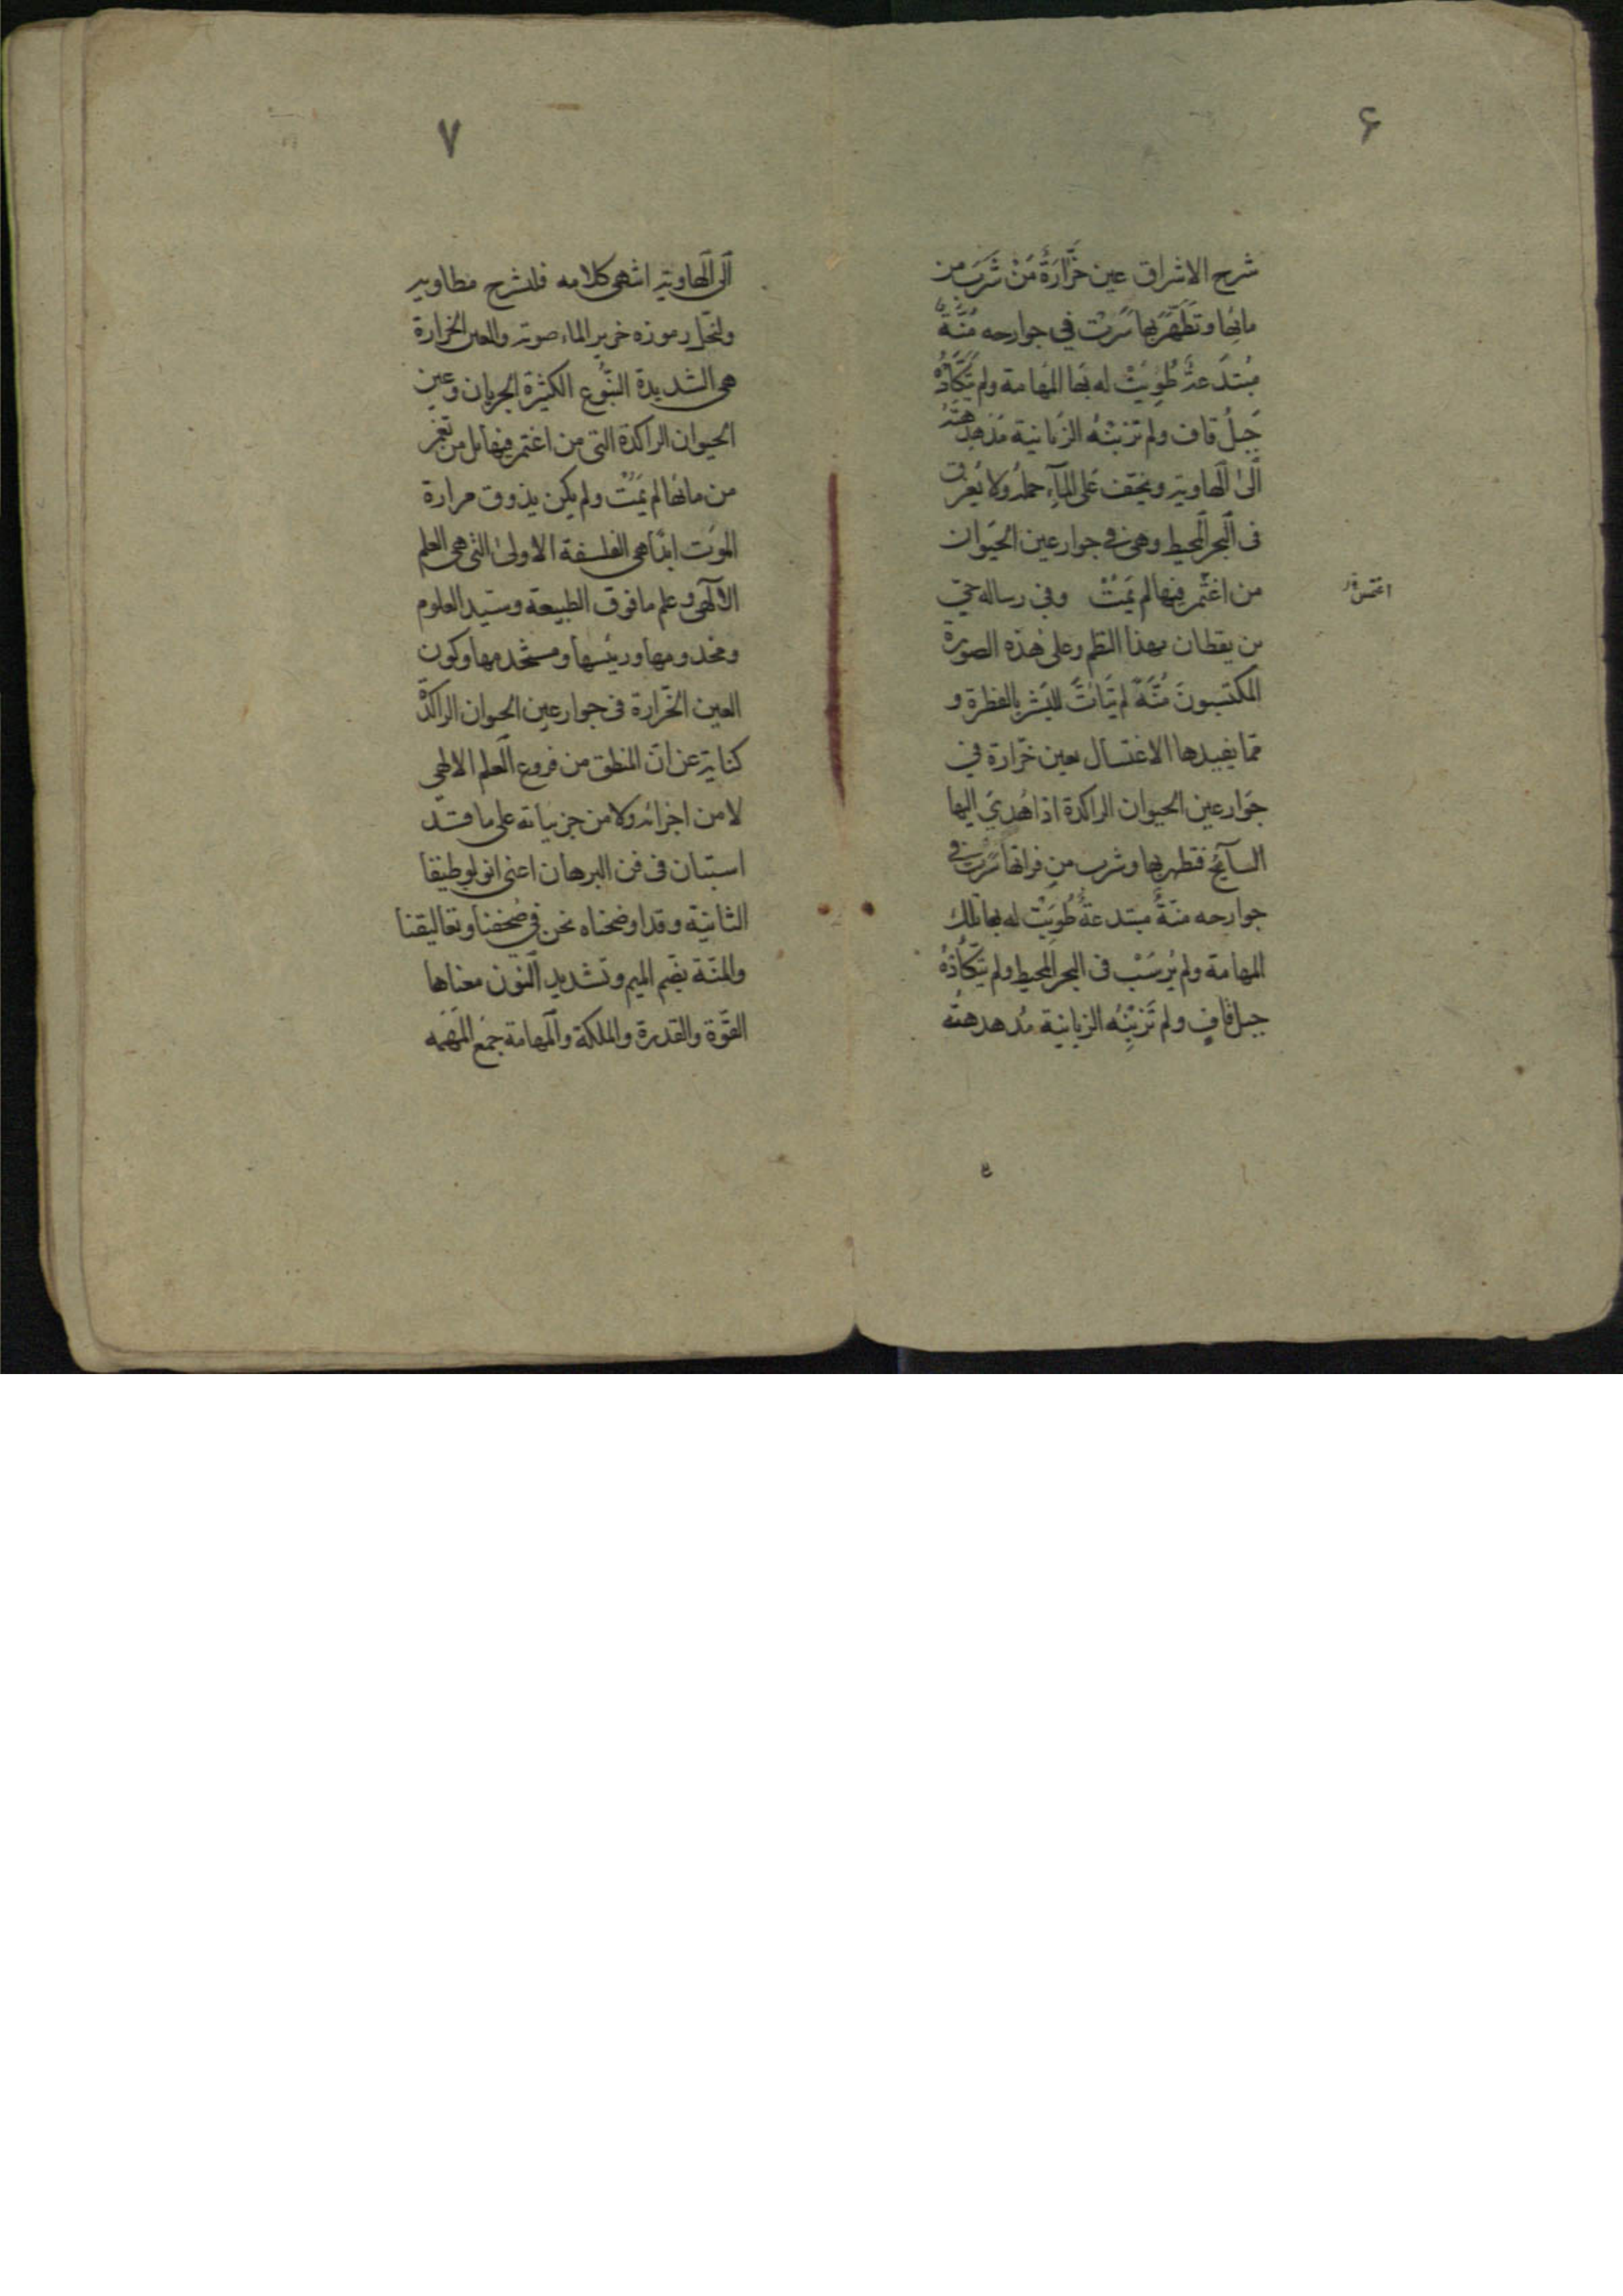 ۶
شرح الاشراق عين خَرَّارَةٌ مَنْ شَرِبَ من
مائِها وتَطَهَّرَ بها سَرَتْ في جوارحه مُنَّةٌ
مُبتَدَعةٌ طُوِيَتْ له بَها المَهامة ولم يَتَكَأَّدْهُ
جَبلُ قاف ولم تزبنْهُ الزَبانية مُدهدِهَتُهُ
الَى الَهاوية ويخِفّ عَلى المآءِ حملُه ولا يُغرق
فى الَبحر الَمحيط وهى فى جوار عين الحَيَوان
من اغتمر فيها لم يَمُتْ وفى رساله حىّ
اغتمس
بن يقظان بهذا النظم وعلى هذه الصورة
المكتسبونَ مُنَّةً لم تَتَأتَّ للبَشر بالفطرة و
مما يفيدها الاغتسال بعين خرّارة في
جَوار عين الحيوان الراكدة اذا هُدِيَ اليها
السآئحُ فتطهر بها وشرب من فراتها سَرَتْ فى
جوارحه منّةٌ مبتدعةٌ طُوِيَتْ له بها تلك
المهامة ولم يُرسَبْ فى البحر المحيط ولم يَتَكَأَّدْهُ
جبل قافٍ ولم تَزبِنْهُ الزبانية مُدهدهتُه
۷
الَى الَهاوية انتهى كلامه فلنشرح مطاويه
ولنحلّ رموزه خرير الماء صوته والعين الخرارة
هى الشديدة النّبُوع الكثيرة الجريان وعين
الحيوان الراكدة التى من اغتمر فيها بل من تغمّر
من مائها لم يَمُتْ ولم يكن يذوق مرارة
الموَت ابدًا هى الفلسفة الاولىٰ التى هى العلم
الالٓهى وعلم مافوق الطبيعة وسيّد العلوم
ومخدومها ورئيسها ومستخدمها وكون
العين الخرّارة فى جوار عين الحيوان الراكدة
كناية عن انّ المنطق من فروع الَعلم الالهى
لا من اجزائه ولا من جزئياته على ما قد
استبان فى فن البرهان اعنى انولوطيقا
الثانية وقد اوضحناه نحن في صُحُفنا وتعاليقنا
والمنّة بضّم الميم وتشديد الَنون معناها
القوّة والقدرة والملكة والَمهامة جَمع المَهْمَه